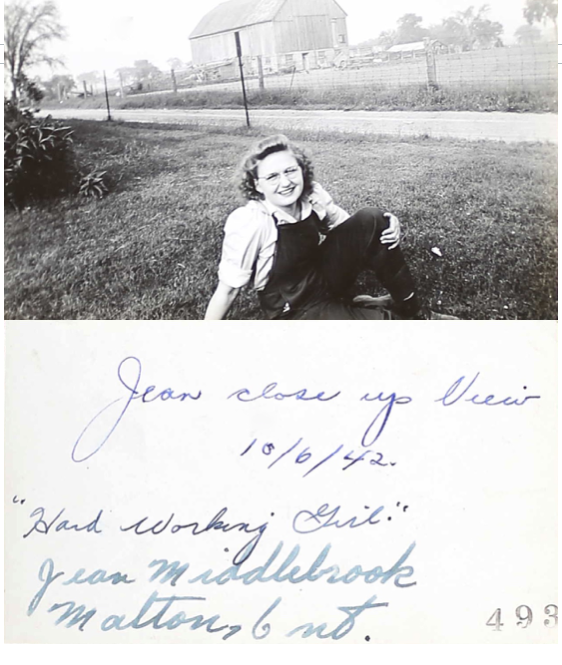 Jean close up View
10/6/42.
"Hard Working Girl."
Jean Middlebrook
Malton, Ont.
493